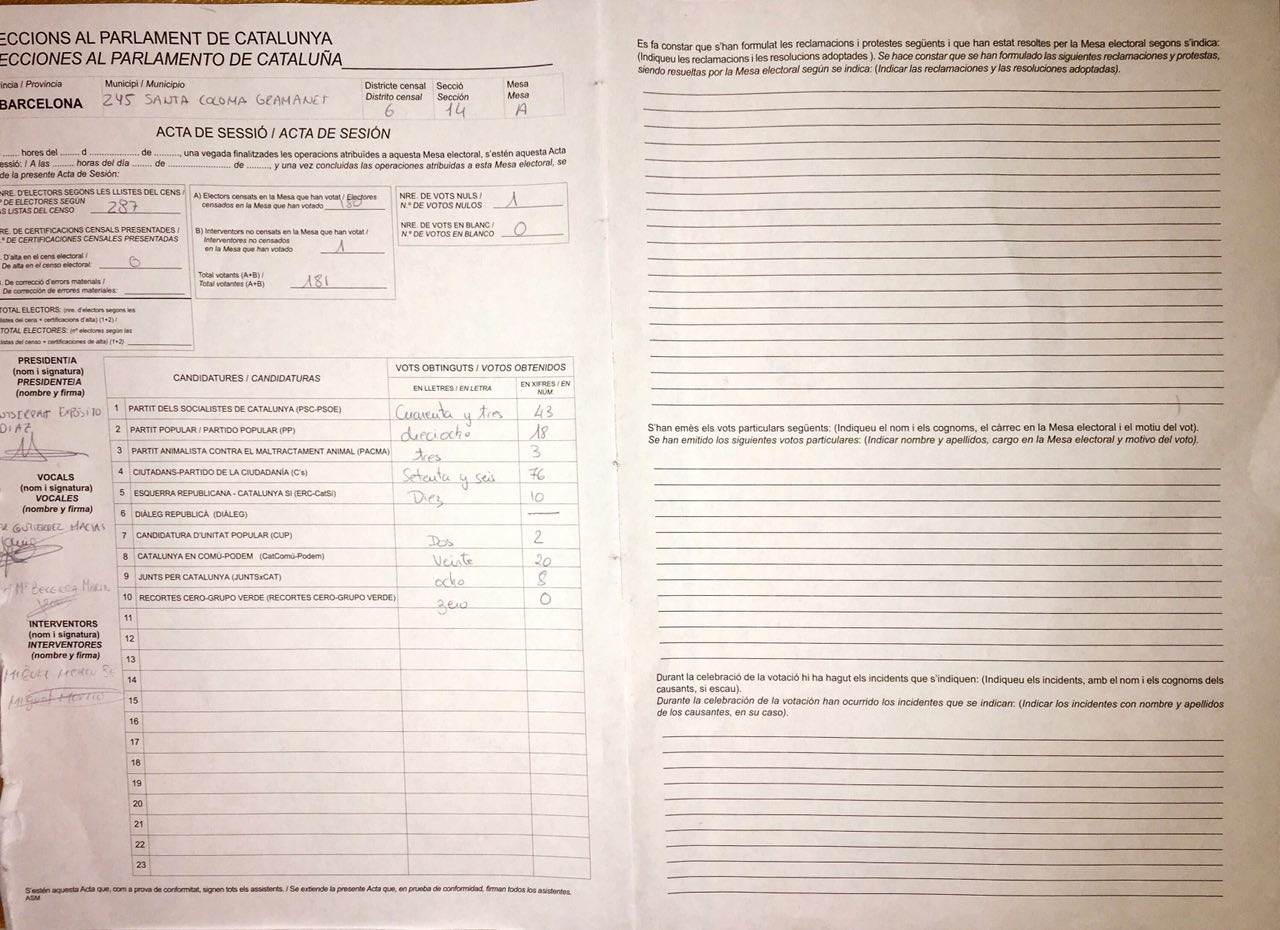 ECCIONS AL PARLAMENT DE CATALUNYA
ECCIONES AL PARLAMENTO DE CATALUÑA
íncia / Provincia
BARCELONA
Municipi / Municipio
245 SANTA COLOMA GRAMANET
Districte censal
Distrito censal
6
Secció
Sección
14
Mesa
Mesa
A
ACTA DE SESSIÓ / ACTA DE SESIÓN
...... hores del ....... d ............ de .........., una vegada finalitzades les operacions atribuïdes a aquesta Mesa electoral, s'estén aquesta Acta
essió: / A las ......... horas del día ....... de ....................... de .........., y una vez concluidas las operaciones atribuidas a esta Mesa electoral, se
de la presente Acta de Sesión:
NRE. D'ELECTORS SEGONS LES LLISTES DEL CENS /
º DE ELECTORES SEGÚN
AS LISTAS DEL CENSO 287
RE. DE CERTIFICACIONS CENSALS PRESENTADES /
.º DE CERTIFICACIONES CENSALES PRESENTADAS
. D'alta en el cens electoral /
De alta en el censo electoral:
. De correcció d'errors materials /
De corrección de errores materiales:
TOTAL ELECTORS: (nre. d'electors segons les
llistes del cens + certificacions d'alta) (1+2) /
TOTAL ELECTORES: (nº electores según las
listas del censo + certificaciones de alta) (1+2)
A) Electors censats en la Mesa que han votat / Electores
censados en la Mesa que han votado 180
B) Interventors no censats en la Mesa que han votat /
Interventores no censados
en la Mesa que han votado 1
Total votants (A+B) /
Total votantes (A+B) 181
NRE. DE VOTS NULS /
N.º DE VOTOS NULOS 1
NRE. DE VOTS EN BLANC /
N.º DE VOTOS EN BLANCO 0
PRESIDENT/A
(nom i signatura)
PRESIDENTE/A
(nombre y firma)
EXPÓSITO
DIAZ
VOCALS
(nom i signatura)
VOCALES
(nombre y firma)
GUTIERREZ MACIAS
Mª BECERRA MARIN
INTERVENTORS
(nom i signatura)
INTERVENTORES
(nombre y firma)
CANDIDATURES / CANDIDATURAS
VOTS OBTINGUTS / VOTOS OBTENIDOS
EN LLETRES / EN LETRA
EN XIFRES / EN NÚM.
1 PARTIT DELS SOCIALISTES DE CATALUNYA (PSC-PSOE) Cuarenta y tres 43
2 PARTIT POPULAR / PARTIDO POPULAR (PP) dieciocho 18
3 PARTIT ANIMALISTA CONTRA EL MALTRACTAMENT ANIMAL (PACMA) tres 3
4 CIUTADANS-PARTIDO DE LA CIUDADANÍA (C's) Setenta y seis 76
5 ESQUERRA REPUBLICANA - CATALUNYA SI (ERC-CatSí) Diez 10
6 DIÀLEG REPUBLICÀ (DIÀLEG) —
7 CANDIDATURA D'UNITAT POPULAR (CUP) Dos 2
8 CATALUNYA EN COMÚ-PODEM (CatComú-Podem) Veinte 20
9 JUNTS PER CATALUNYA (JUNTSxCAT) ocho 8
10 RECORTES CERO-GRUPO VERDE (RECORTES CERO-GRUPO VERDE) zero 0
11
12
13
14
15
16
17
18
19
20
21
22
23
S'estén aquesta Acta que, com a prova de conformitat, signen tots els assistents. / Se extiende la presente Acta que, en prueba de conformidad, firman todos los asistentes.
ASM
Es fa constar que s'han formulat les reclamacions i protestes següents i que han estat resoltes per la Mesa electoral segons s'indica:
(Indiqueu les reclamacions i les resolucions adoptades ). Se hace constar que se han formulado las siguientes reclamaciones y protestas,
siendo resueltas por la Mesa electoral según se indica: (Indicar las reclamaciones y las resoluciones adoptadas).
S'han emès els vots particulars següents: (Indiqueu el nom i els cognoms, el càrrec en la Mesa electoral i el motiu del vot).
Se han emitido los siguientes votos particulares: (Indicar nombre y apellidos, cargo en la Mesa electoral y motivo del voto).
Durant la celebració de la votació hi ha hagut els incidents que s'indiquen: (Indiqueu els incidents, amb el nom i els cognoms dels
causants, si escau).
Durante la celebración de la votación han ocurrido los incidentes que se indican: (Indicar los incidentes con nombre y apellidos
de los causantes, en su caso).